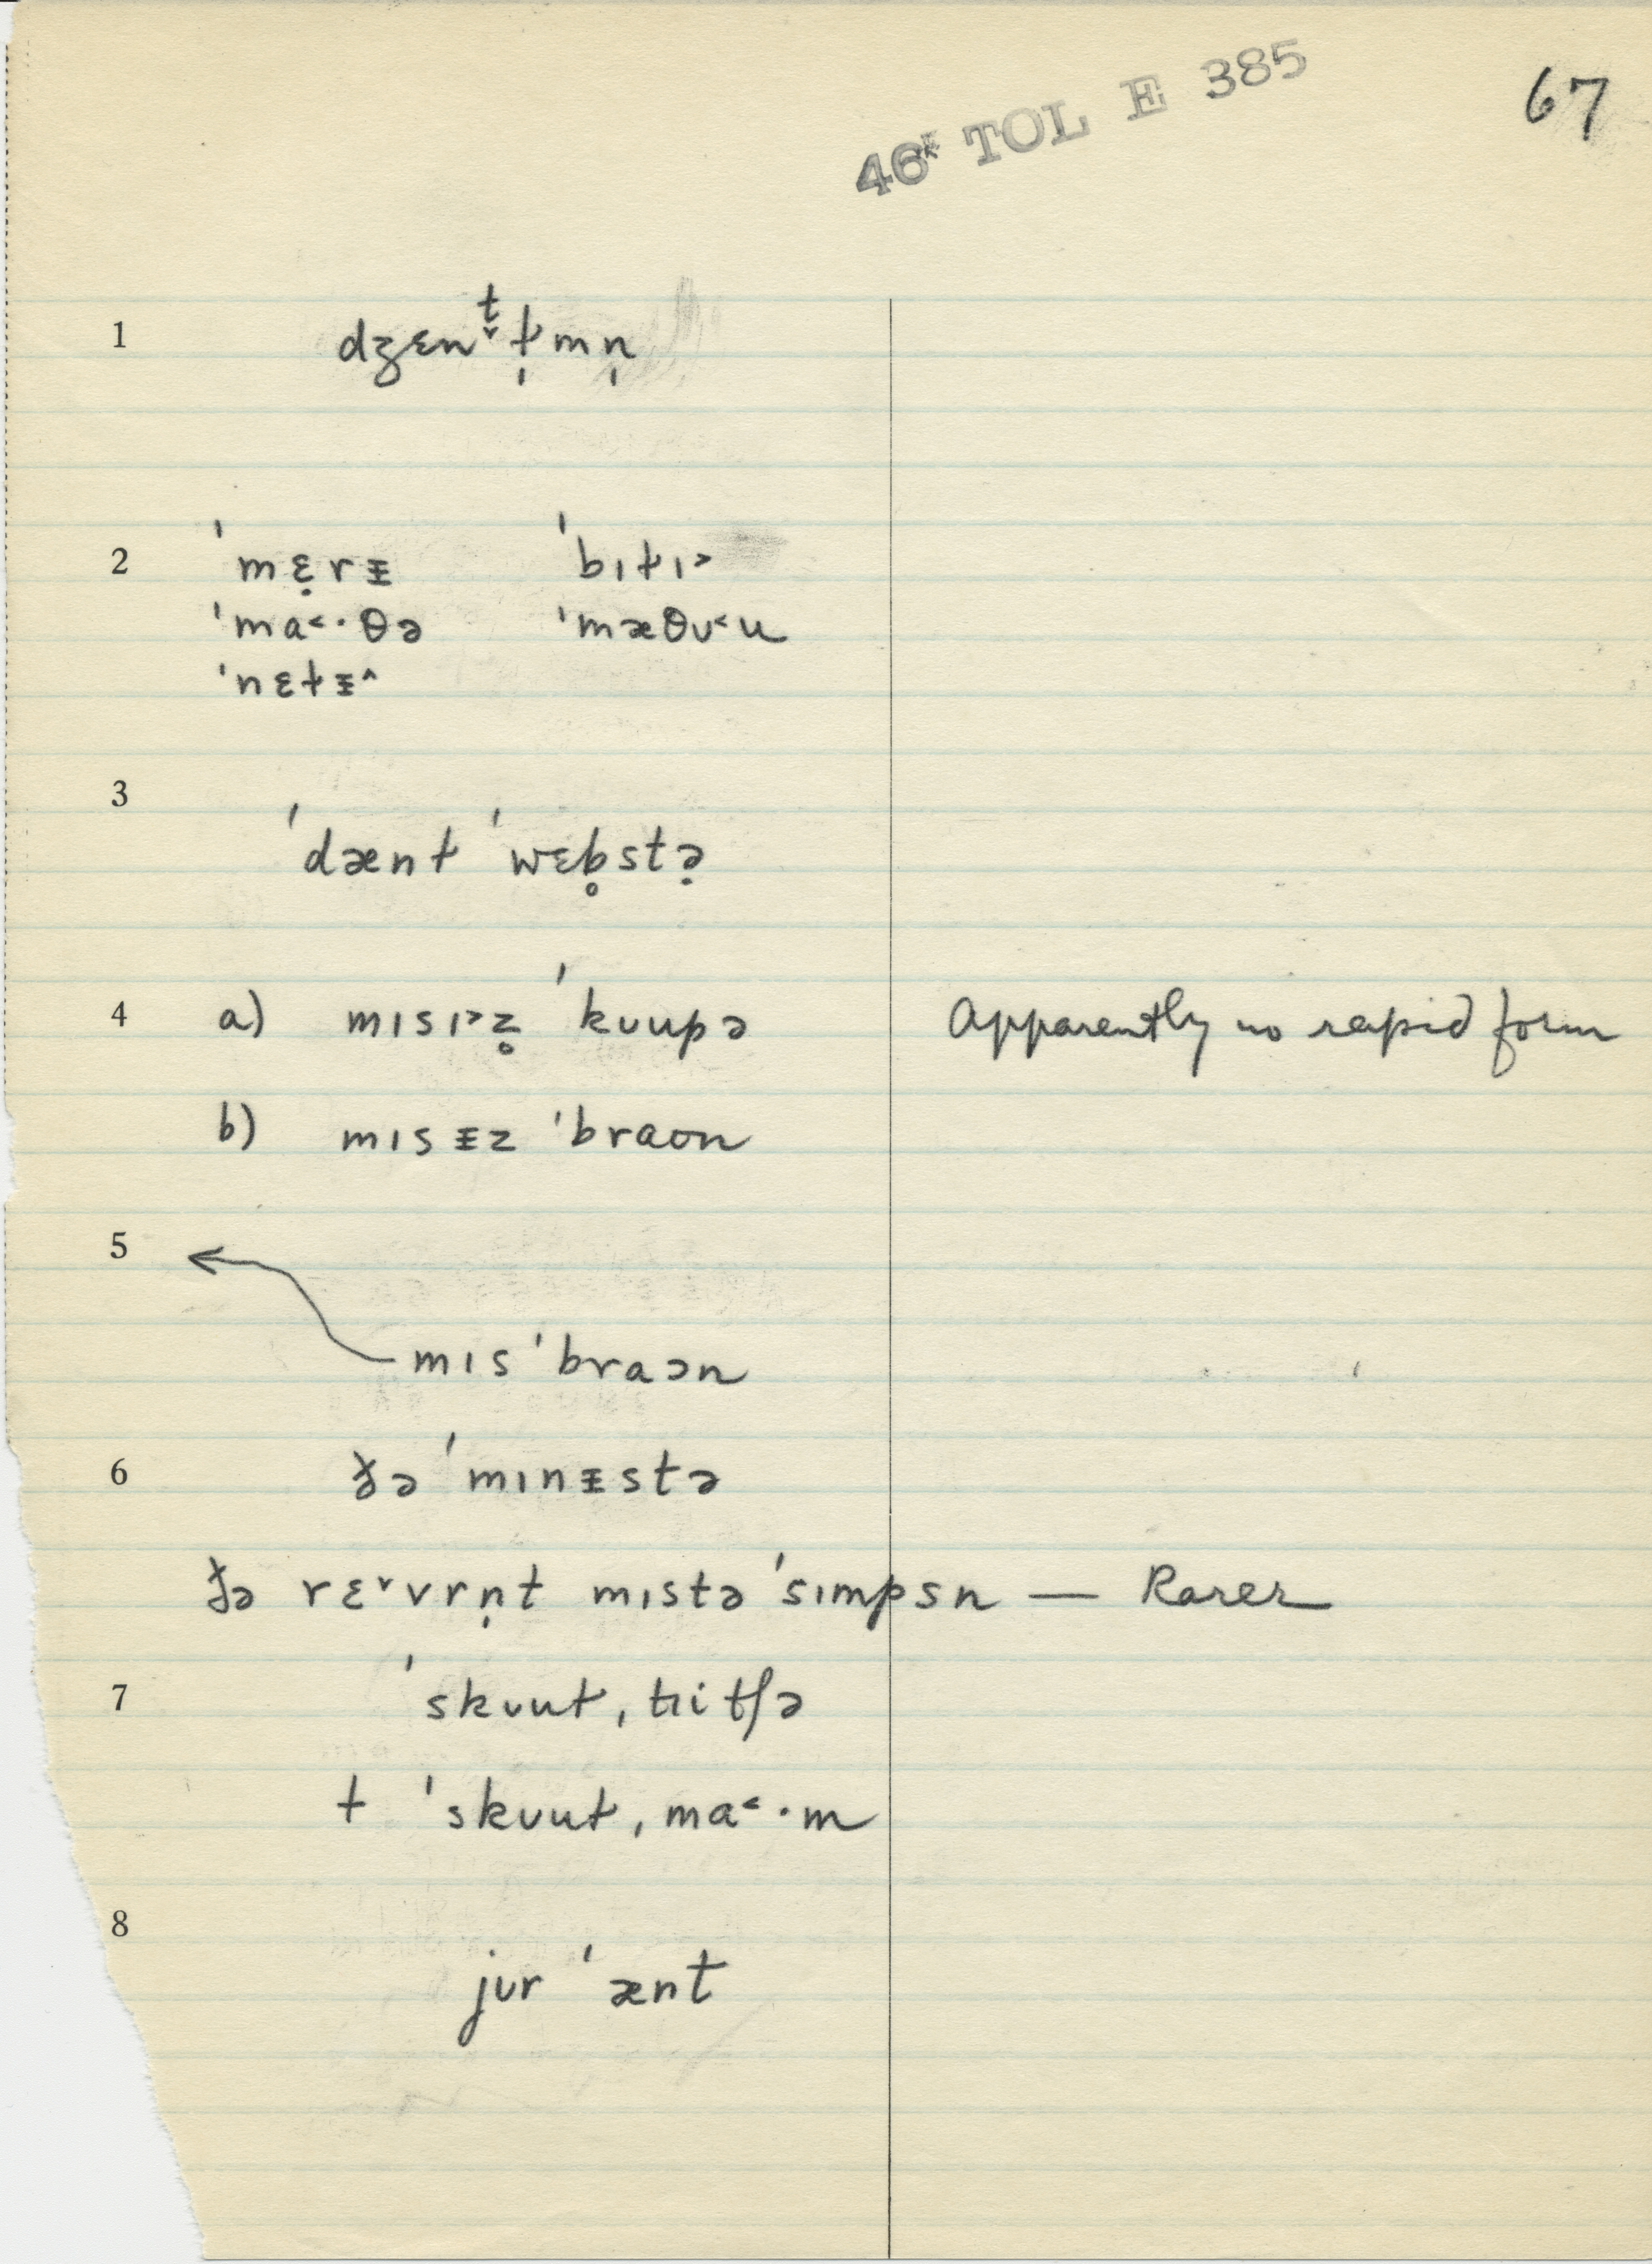 46* TOL E 385
67
1 dʒɛnt̬t̩mn̩
2 ˈmɛ̣rᵻ ˈbɪt̬ɪ˃
ˈma˂·θə ˈmæθʊ˂u
ˈnɛt̬ᵻ˄
3 ˈdænt̬ ˈwɛb̥stə̣
4 a) mɪsɪ˃z̥ ˈkʊupə Apparently no rapid form
b) mɪsᵻz ˈbraʊn
5
mɪsˈbraɔn
6 ðə ˈmɪnᵻstə
ðə rɛ˅vrn̩t mɪstə ˈsɪmpsn — Rarer
7 ˈskʊut̬ˌtɪitʃə
+ ˈskʊut̬ˌma˂·m
8
jʊr ˈænt